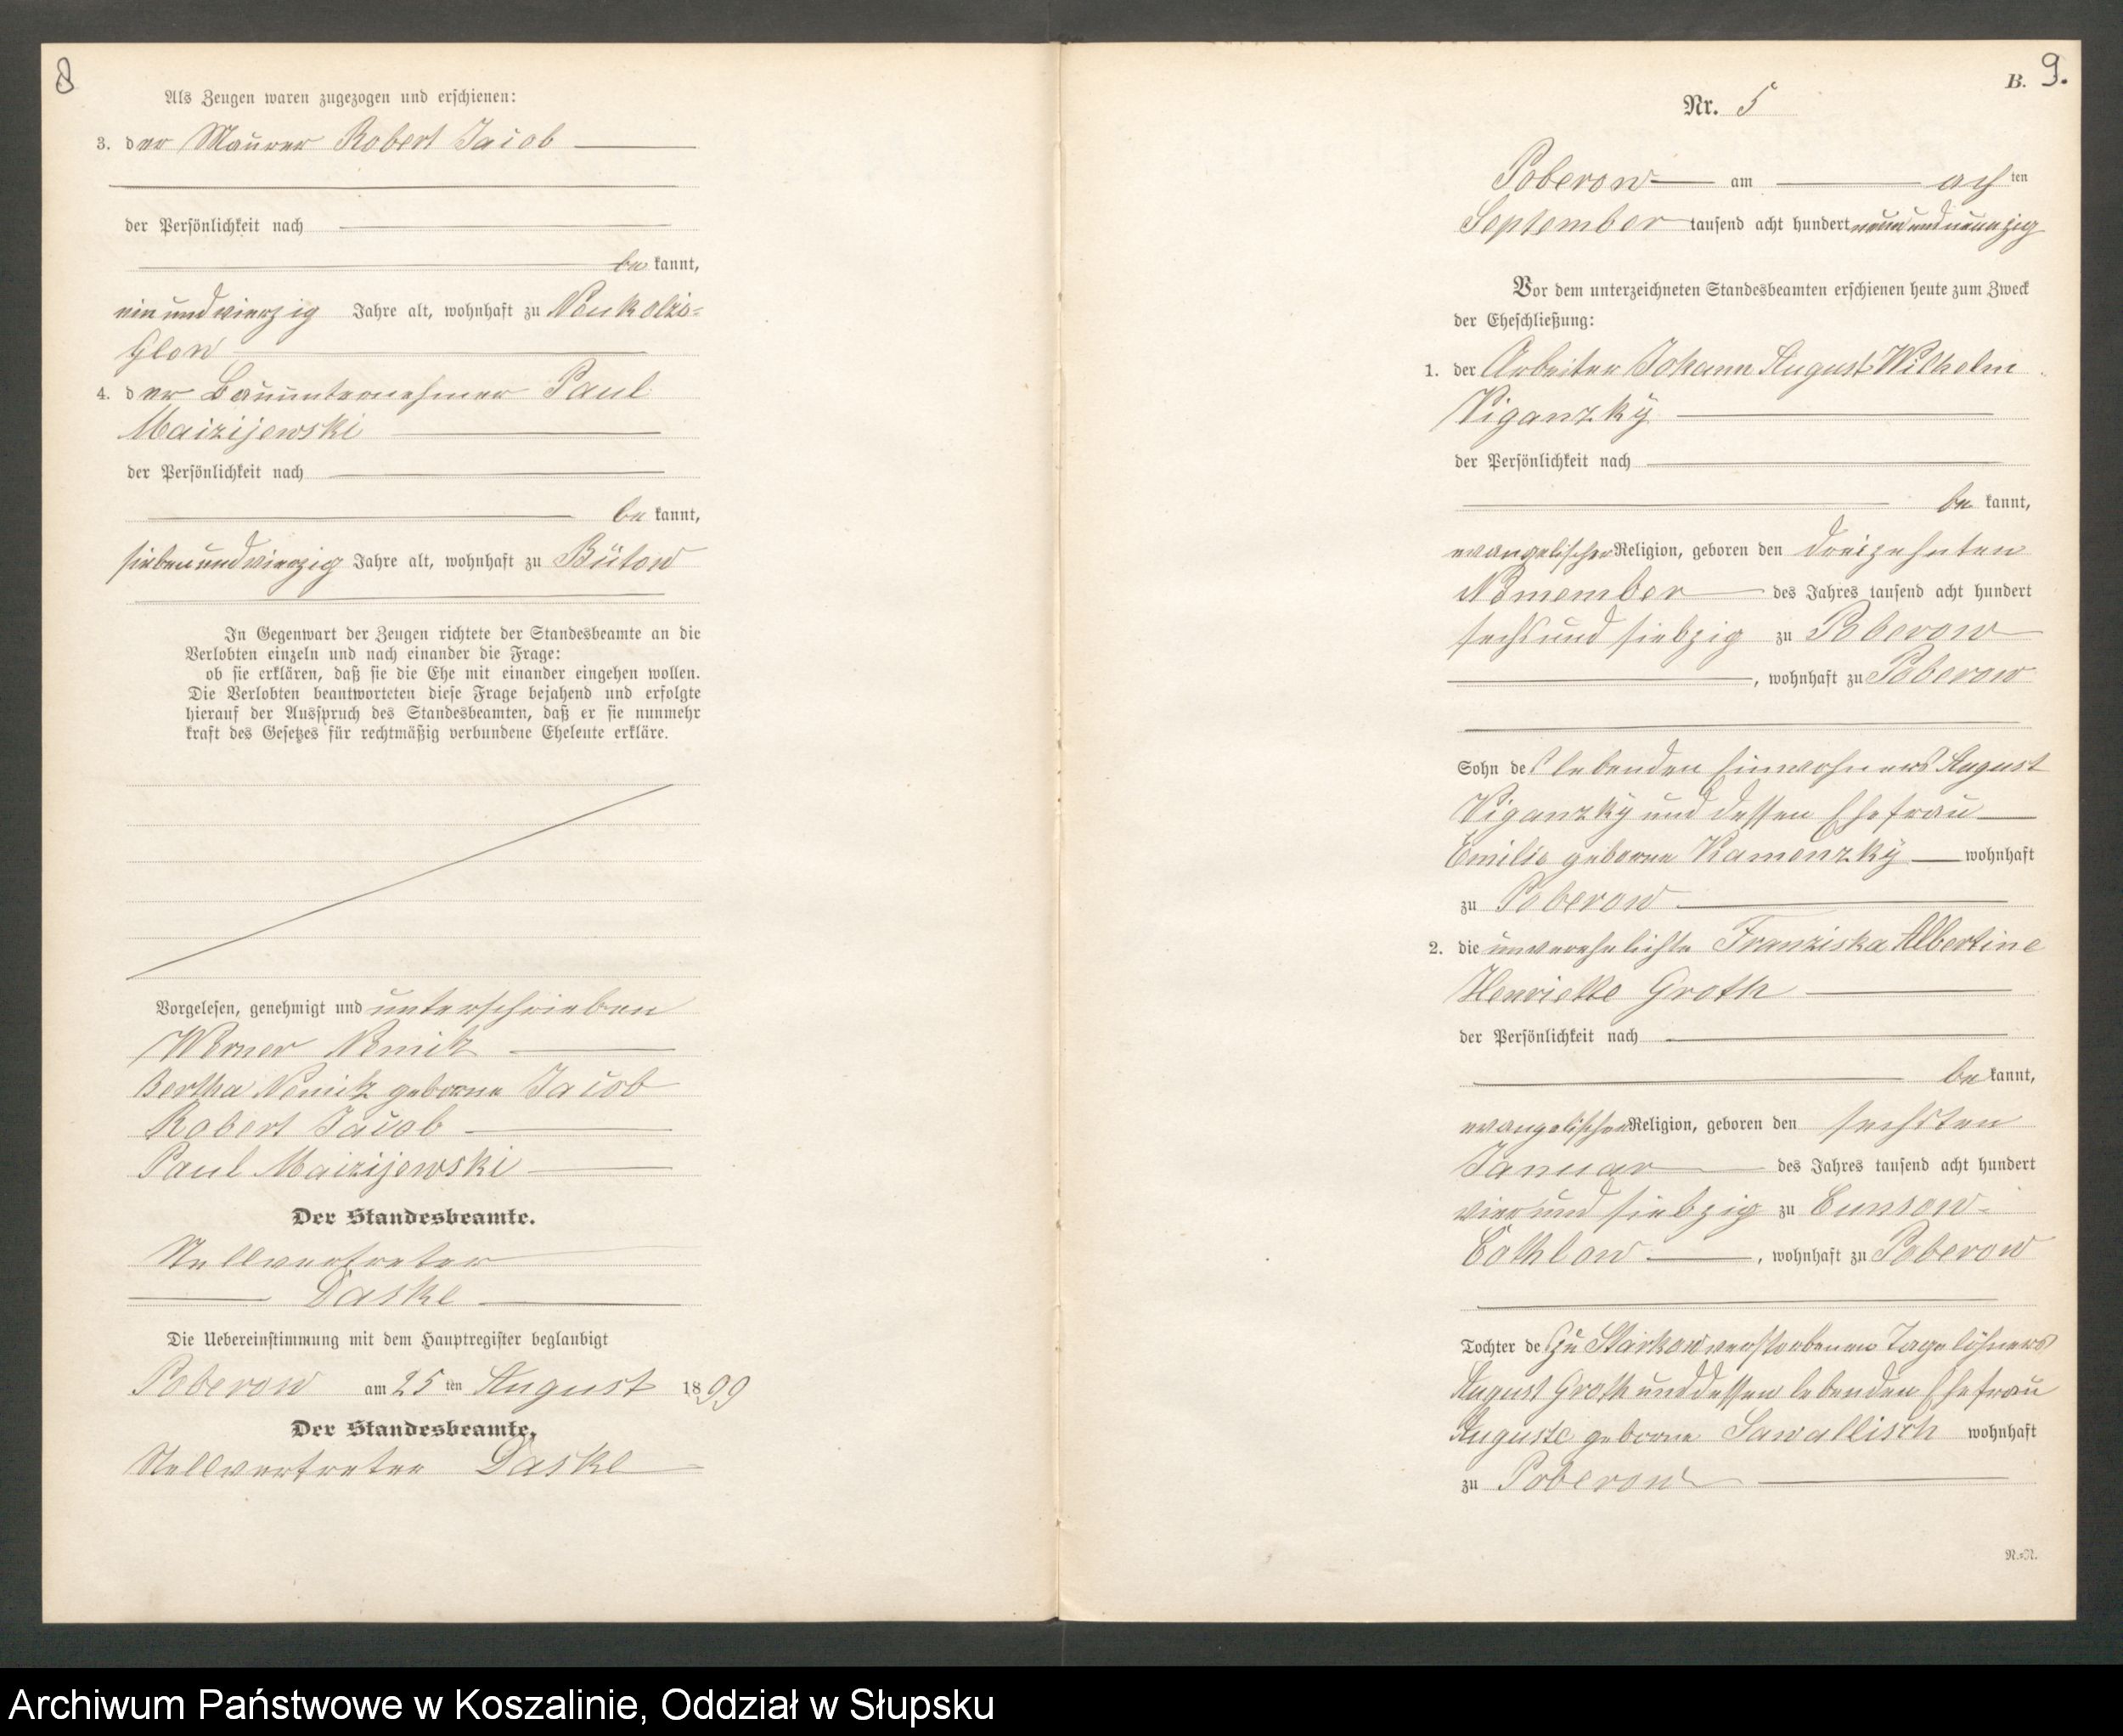 8
Als Zeugen waren zugezogen und erschienen:
3. der Maurer Robert Jacob
der Persönlichkeit nach
be kannt,
ein und vierzig Jahre alt, wohnhaft zu Neukolzi=
glow
4. der Bauunternehmer Paul
Maizijewski
der Persönlichkeit nach
be kannt,
sieben und vierzig Jahre alt, wohnhaft zu Bütow
In Gegenwart der Zeugen richtete der Standesbeamte an die
Verlobten einzeln und nach einander die Frage:
ob sie erklären, daß sie die Ehe mit einander eingehen wollen.
Die Verlobten beantworteten diese Frage bejahend und erfolgte
hierauf der Ausspruch des Standesbeamten, daß er sie nunmehr
kraft des Gesetzes für rechtmäßig verbundene Eheleute erkläre.
Vorgelesen, genehmigt und unterschrieben
Werner Nemitz
Bertha Nemitz geborne Jacob
Robert Jacob
Paul Maizijewski
Der Standesbeamte.
Stellvertreter
Daske
Die Uebereinstimmung mit dem Hauptregister beglaubigt
Poberow am 25 ten August 1899
Der Standesbeamte.
Stellvertreter Daske
B. 9.
Nr. 5
Poberow am ach ten
September tausend acht hundert neun und neunzig
Vor dem unterzeichneten Standesbeamten erschienen heute zum Zweck
der Eheschließung:
1. der Arbeiter Johann August Wilhelm
Viganzky
der Persönlichkeit nach
be kannt,
evangelischer Religion, geboren den dreizehnten
November des Jahres tausend acht hundert
sechs und siebzig zu Poberow
, wohnhaft zu Poberow
Sohn des lebenden Einwohners August
Viganzky und dessen Ehefrau
Emilie geborne Kamenzky wohnhaft
zu Poberow
2. die unverehelichte Franziska Albertine
Henriette Groth
der Persönlichkeit nach
be kannt,
evangelischer Religion, geboren den sechsten
Januar des Jahres tausend acht hundert
vier und siebzig zu Cunsow-
Cothlow, wohnhaft zu Poberow
Tochter des zu Starkow verstorbenen Tagelöhners
August Groth und dessen lebenden Ehefrau
Auguste geborne Sawallisch wohnhaft
zu Poberow
N.=N.
Archiwum Państwowe w Koszalinie, Oddział w Słupsku